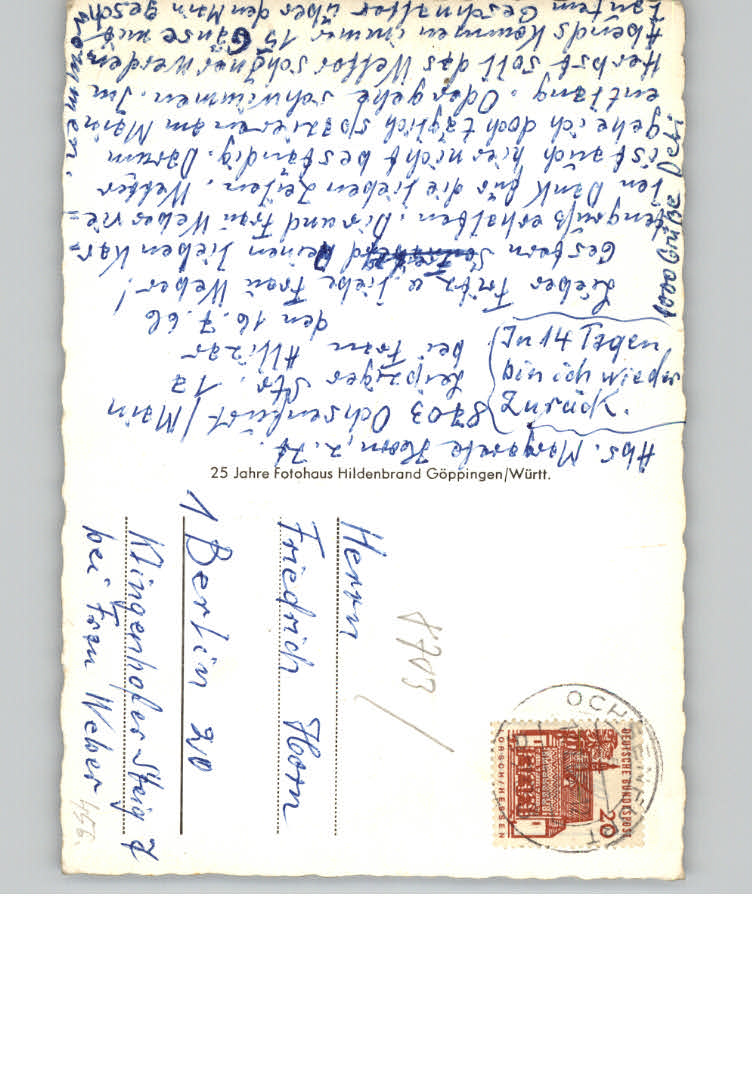 Abs. Margarete Horn, z. Zt.
8703 Ochsenfurt / Main
Leipziger Str. 12
bei Frau
den 16.7.66
Zurück
bin ich
Lieber Fritz u liebe Frau Weber!
Gestern Deinen lieben Kar-
tengruß erhalten. Dir und Frau Weber vie-
len Dank für die lieben Zeilen. Wetter
ist auch hier nicht beständig. Darum
gehe ich doch täglich spazieren am Main
entlang. Oder gehe schwimmen. Im
Herbst soll das Wetter schöner werden
Abends kommen immer 15 Gänse mit
lautem Geschnatter über den Main gesch-
wommen.
1000 Grüße
25 Jahre Fotohaus Hildenbrand Göppingen/Württ.
Herrn
Friedrich Horn
1 Berlin 20
Klingenhofer Steig 7
bei Frau Weber
8703
OCHSENFURT
DEUTSCHE BUNDESPOST
20
LORSCH/HESSEN